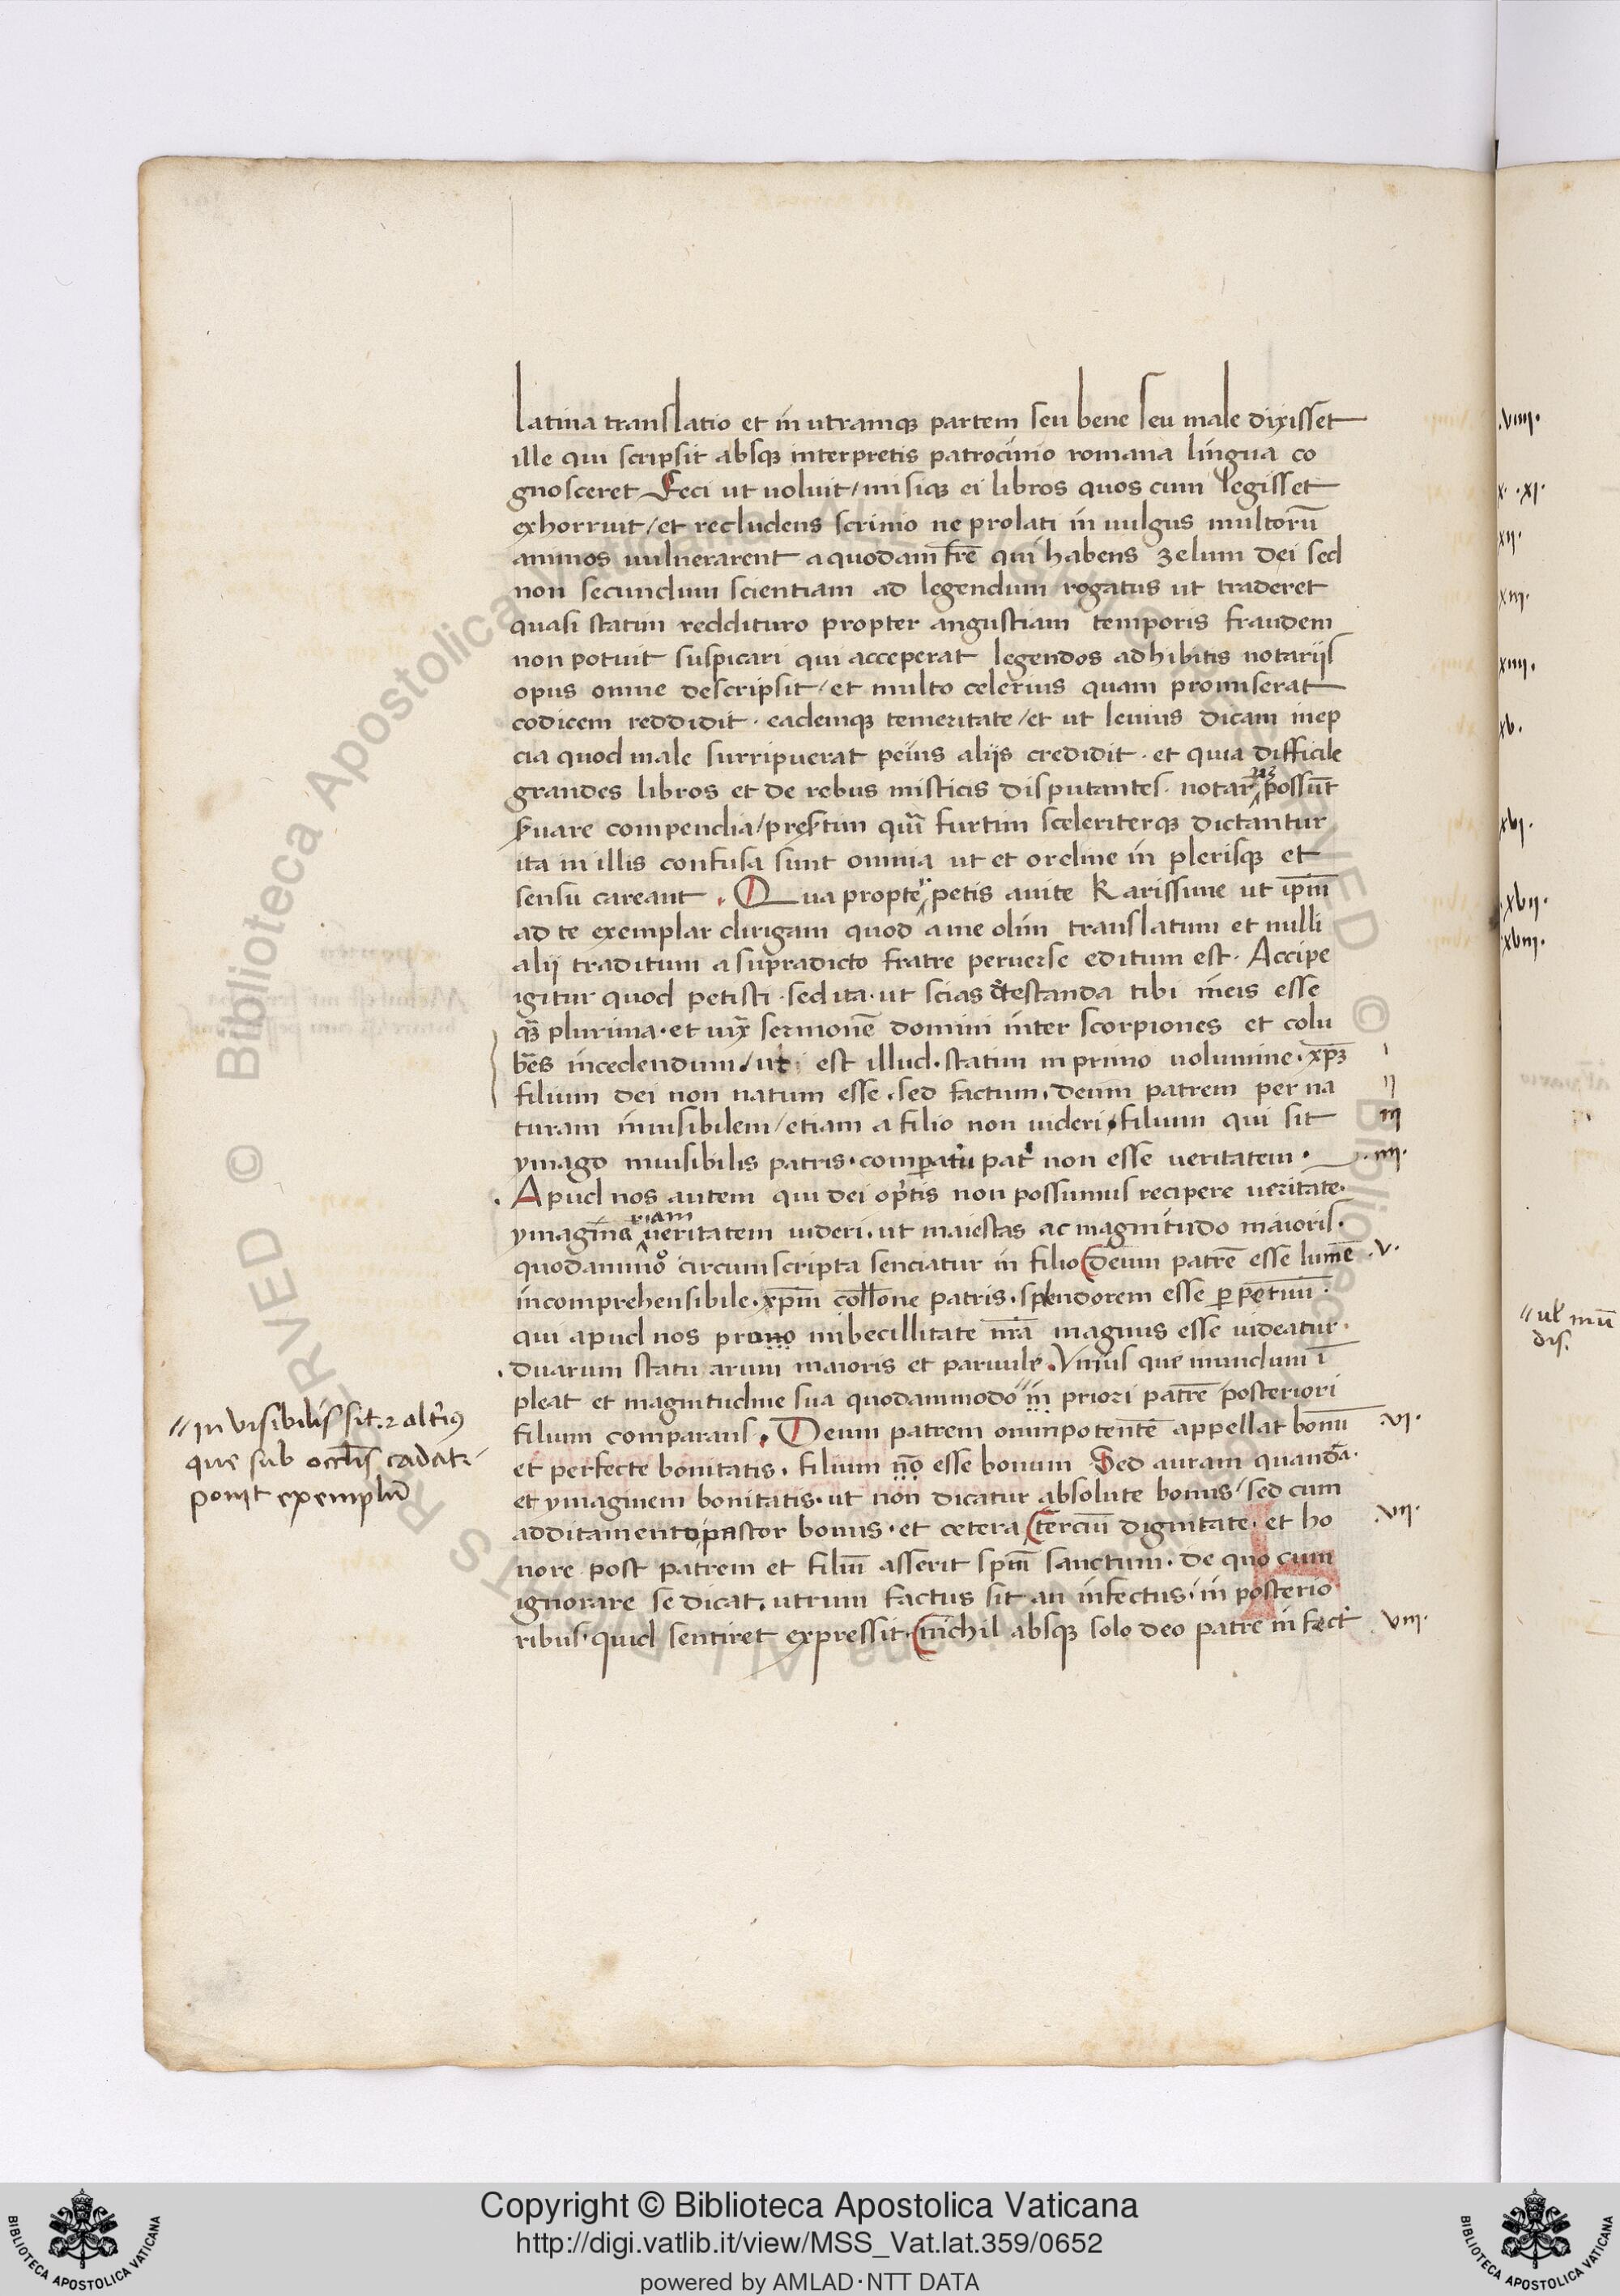 latina translatio et in utramqꝫ partem seu bene seu male dixisset
ille qui scripsit absqꝫ interpretis patrocinio romana lingua co
gnosceret Feci ut uoluit / misiqꝫ ei libros quos cum legisset
exhorruit / et recludens scrinio ne prolati in uulgus multoru̅
animos uulnerarent a quodam fr̅e qui habens zelum dei sed
non secundum scientiam ad legendum rogatus ut traderet
quasi statim reddituro propter angustiam temporis fraudem
non potuit suspicari qui acceperat legendos adhibitis notarijs
opus omne descripsit / et multo celerius quam promiserat
codicem reddidit · eademqꝫ temeritate / et ut leuius dicam inep
cia quod male surripuerat peius alijs credidit · et quia difficile
grandes libros et de rebus misticis disputantes · notar possu̅t
uare compendia / presertim furtim sceleriterqꝫ dictantur
ita in illis confusa sunt omnia ut et ordine in plerisqꝫ et
sensu careant . Qua propter petis auite Karissime ut ip̅m
ad te exemplar dirigam quod a me olim translatum et nulli
alij traditum a supradicto fratre peruerse editum est · Accipe
igitur quod petisti · sed ita · ut scias detestanda tibi in eis esse
plurima · et iuxta sermone̅ domini inter scorpiones et colu
bres incedendum / uti est illud · statim in primo uolumine · xp̅ꝫ
filium dei non natum esse · sed factum · deum patrem per na
turam inuisibilem / etiam a filio non uideri · filium qui sit
ymago inuisibilis patris · comparatu̅ patri non esse ueritatem ·
Apud nos autem qui dei op̅tis non possumus recipere ueritate̅ ·
ymagine̅ riam ueritatem uideri · ut maiestas ac magnitudo maioris ·
quodammo̊ circumscripta senciatur in filio deum patre̅ esse lume̅
incomprehensibile · xp̅m coll̅one patris · splendorem esse perpetuu̅ ·
qui apud nos pro imbecillitate nr̅a magnus esse uideatur ·
duarum statu arum maioris et paruule . Vnius que mundum i̅
pleat et magnitudine sua quodammodo in priori patre̅ posteriori
filium comparans . Deum patrem omnipotente̅ appellat bonu̅
et perfecte bonitatis · filium no̅ esse bonum Sed auram quanda̅ ·
et ymaginem bonitatis · ut non dicatur absolute bonus / sed cum
additamento pastor bonus · et cetera terciu̅ dignitate · et ho
nore post patrem et filiu̅ asserit sp̅m sanctum · de quo cum
ignorare se dicat · utrum factus sit an infectus · in posterio
ribus · quid sentiret expressit · nichil absqꝫ solo deo patre in fect
ı
ıı
ııı
· ıııı ·
· v ·
· vı ·
· vıı ·
vııı ·
// inuisibilis sit · ⁊ alt̕ius
que sub occl̅is cadat ·
ponit exemplu̅
. vııı ·
x · · xı ·
xıı ·
xııı ·
xıııı ·
xv ·
xvı ·
· xvıı ·
· xvııı ·
// ul̕ mu̅
dis ·
© Biblioteca Apostolica Vaticana
Copyright © Biblioteca Apostolica Vaticana
http://digi.vatlib.it/view/MSS_Vat.lat.359/0652
powered by AMLAD·NTT DATA
BIBLIOTECA APOSTOLICA VATICANA
BIBLIOTECA APOSTOLICA VATICANA